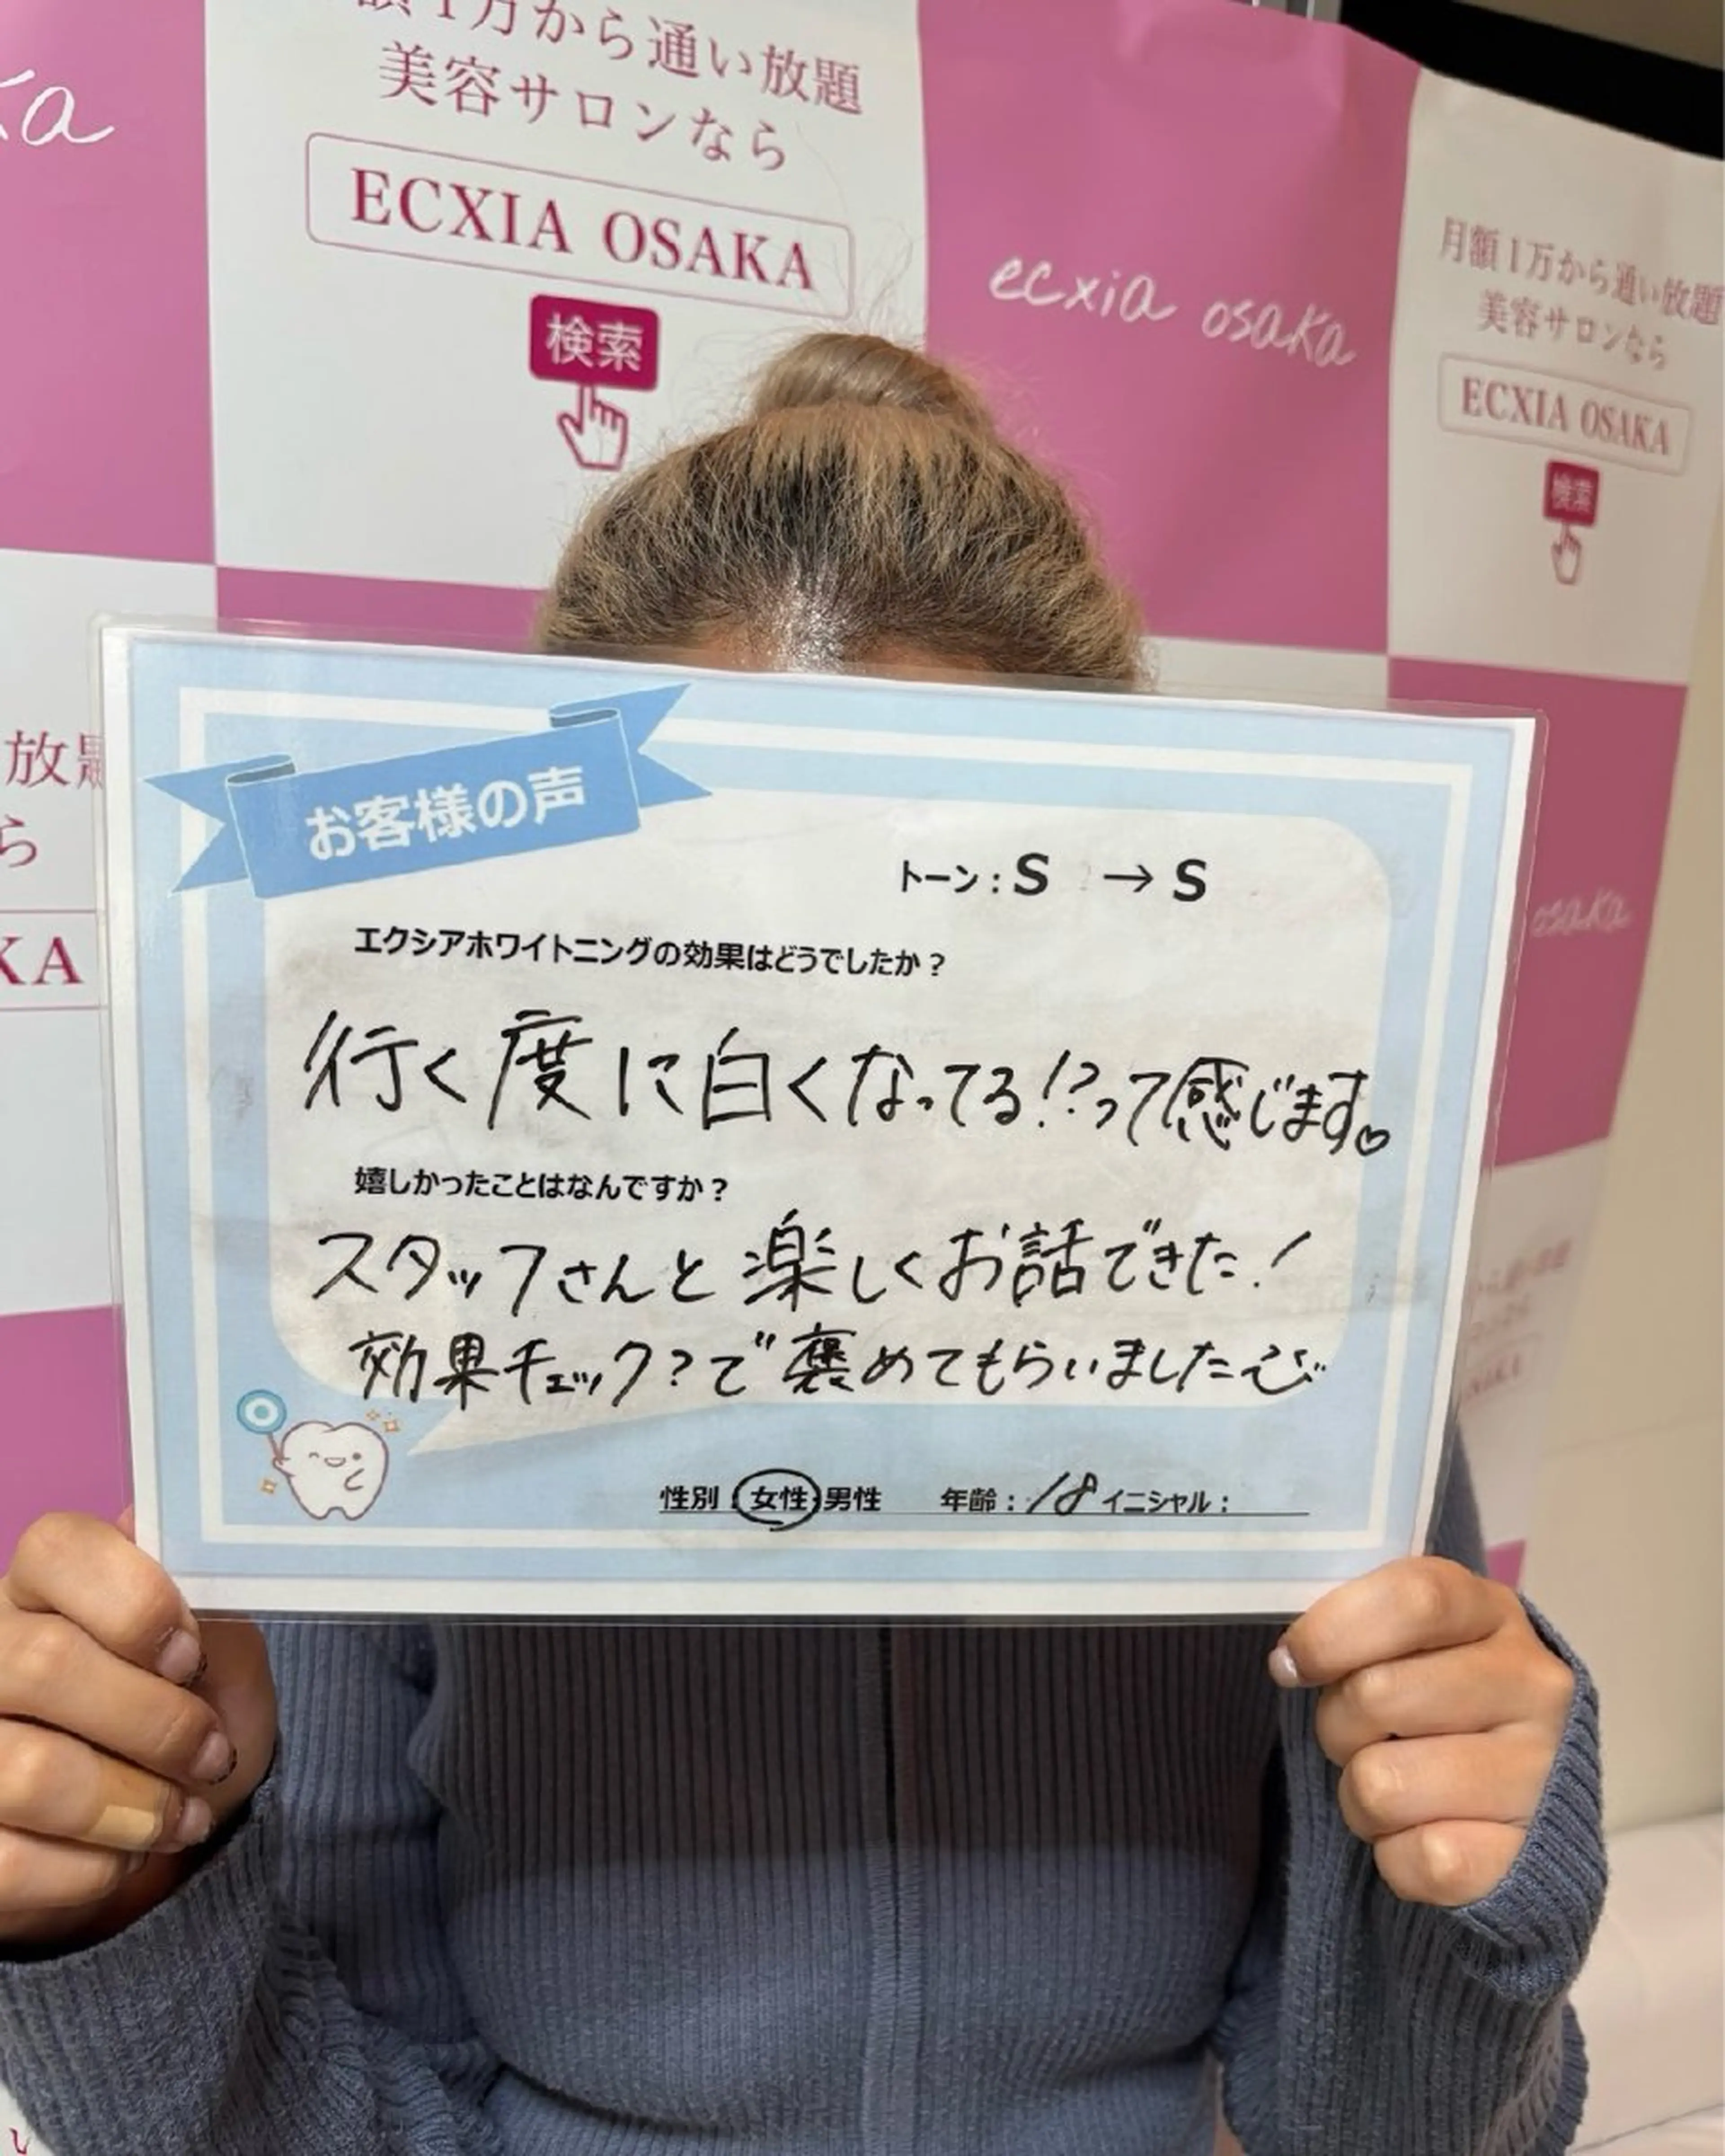 額1万から通い放題
美容サロンなら
ECXIA OSAKA
検索
ecxia osaka
月額1万から通い放題
美容サロンなら
ECXIA OSAKA
検索
ka
放題
ら
KA
osaka
お客様の声
トーン：S → S
エクシアホワイトニングの効果はどうでしたか？
行く度に白くなってる!?って感じます♡
嬉しかったことはなんですか？
スタッフさんと楽しくお話できた！
効果チェック？で褒めてもらいました
性別：女性・男性 年齢：18 イニシャル：
い